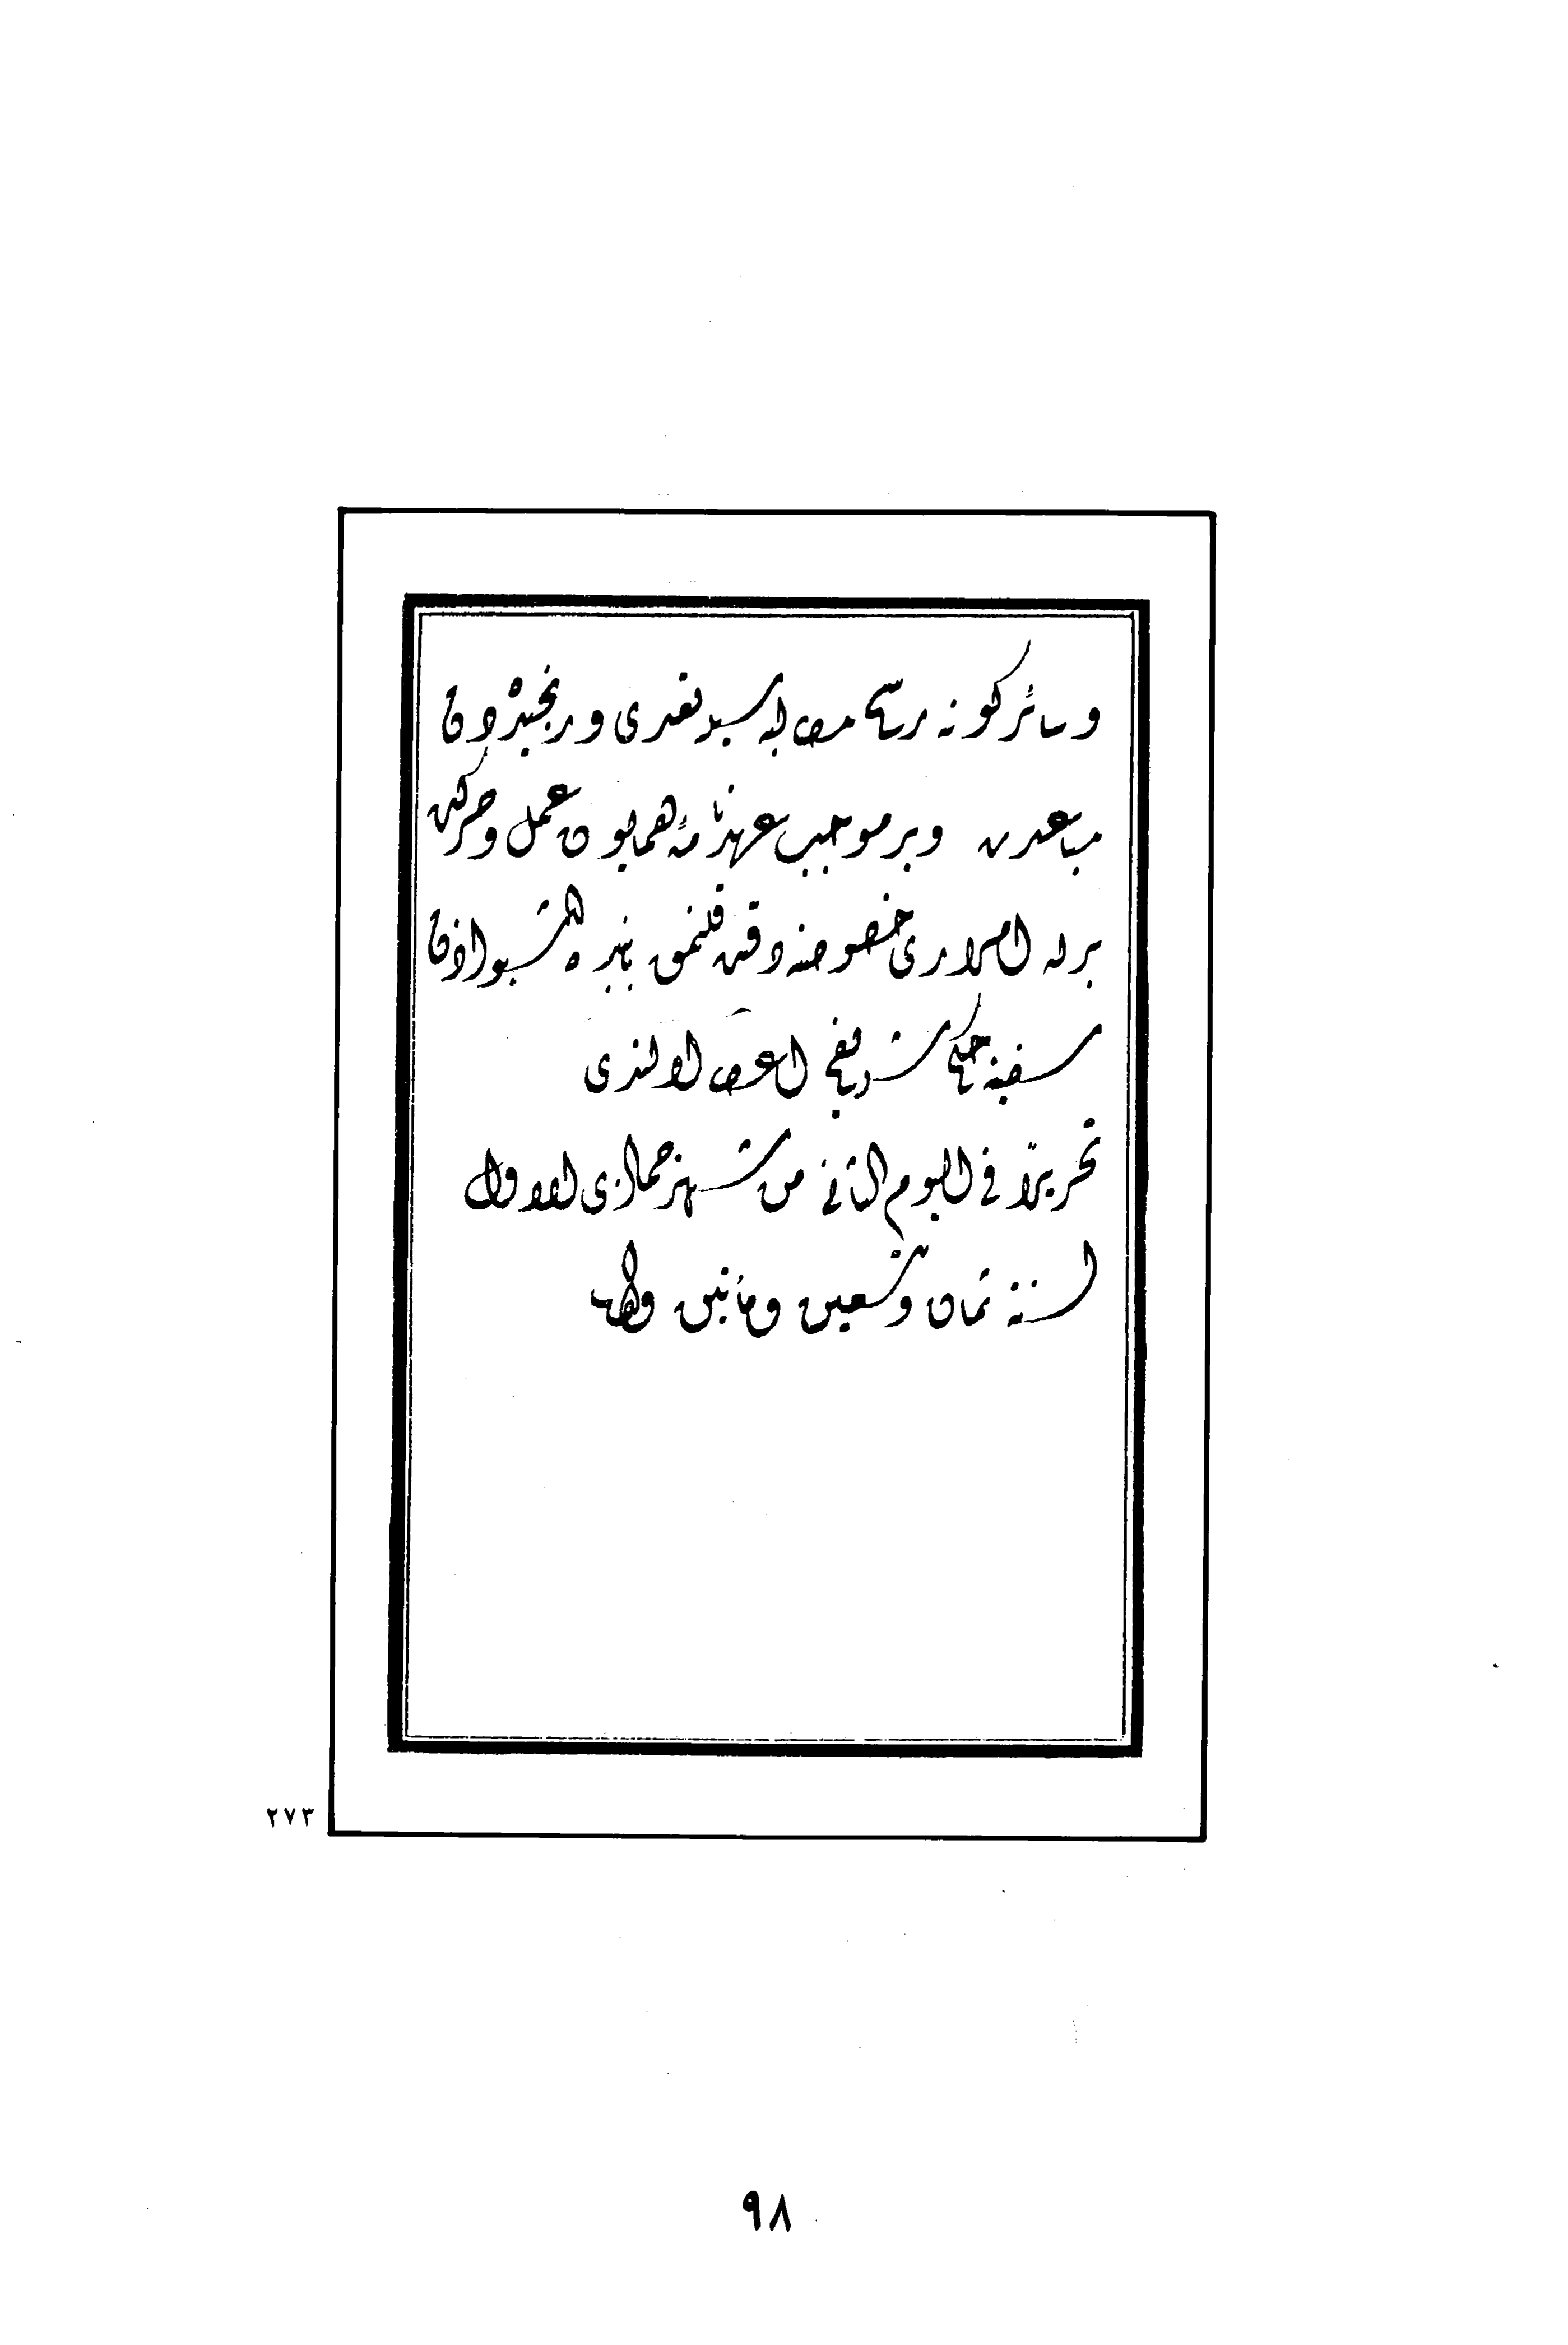 و سائر كونه رسم مطالبه سيله تعدى و رنجيده دن
مباعدت و بر موجب عهدنامۀ همايون عمل و حركت
برله امرارى خصوصنه دقت قلنمق بابنده اشبو اذن
سفينه حكم شريفم اعطا اولندى
تحريرًا فى اليوم الثانى من شهر جمادى الاولى
لسنة ثمان وتسعين ومائتين والف
٢٧٣
٩٨